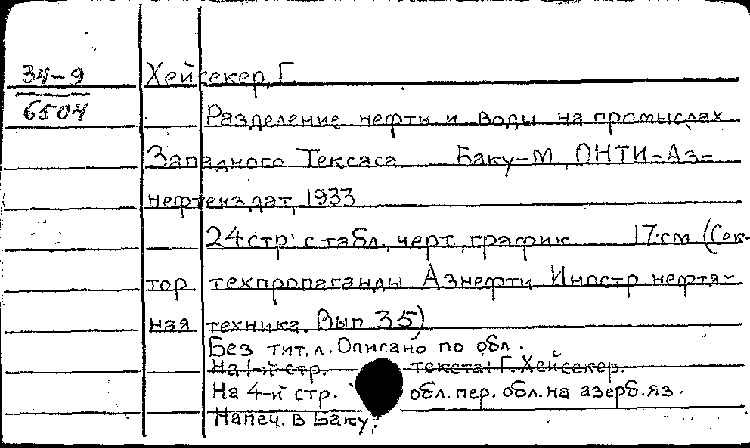 34-9 Хейсекер, Г.
6504
Разделение нефти и воды на промыслах
Западного Тексаса Баку-М, ОНТИ-Аз-
нефтеиздат, 1933
24 стр. с табл., черт., график. 17 см (Сек-
тор техпропаганды Азнефти Иностр нефтя-
ная техника. Вып 35)
Без тит. л. Описано по обл.
На 1-й стр. текста: Г. Хейсекер.
На 4-й стр. обл. пер. обл. на азерб. яз.
Напеч. в Баку.